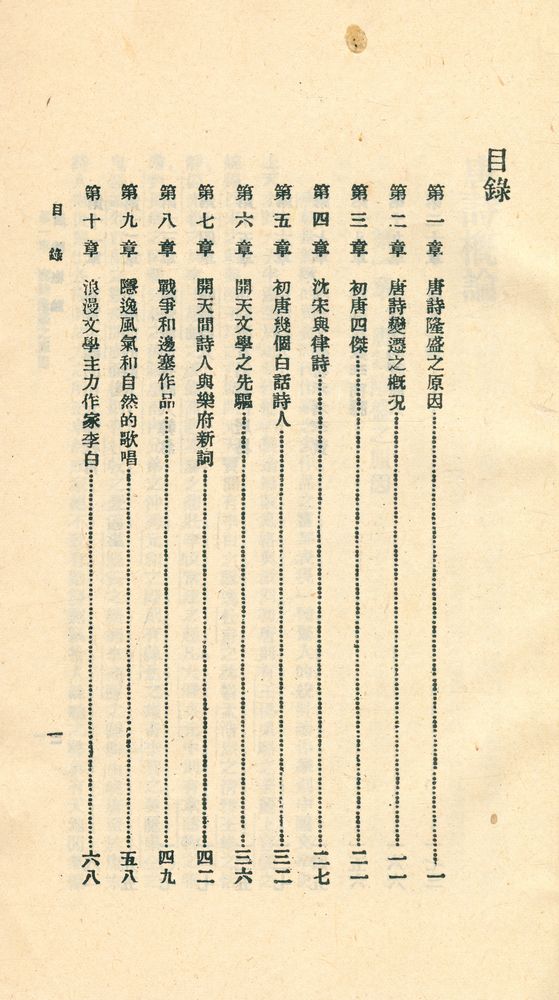 目錄
第一章 唐詩隆盛之原因……一
第二章 唐詩變遷之槪況……一一
第三章 初唐四傑……二一
第四章 沈宋與律詩……二七
第五章 初唐幾個白話詩人……三二
第六章 開天文學之先驅……三六
第七章 開天間詩人與樂府新詞……四二
第八章 戰爭和邊塞作品……四九
第九章 隱逸風氣和自然的歌唱……五八
第十章 浪漫文學主力作家李白……六八
目錄
一